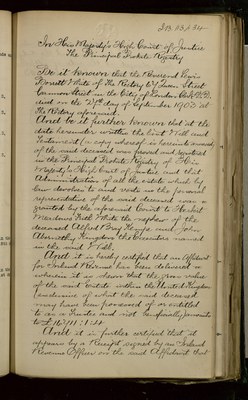 In His Majesty's High Court of Justice
The Principal Probate Registry
Be it known that the Reverend Lewis
White of The Rectory Lane Street
Cannon Street in the City of London
died on the day of September 1903 at
the Rectory aforesaid
And be it further known that at the
date hereunder written the last Will and
Testament (a copy whereof is hereunto annexed)
of the said deceased was proved and registered
in the Principal Probate Registry of His
Majesty's High Court of Justice and that
Administration of all the estate which by
law devolves to and vests in the personal
representative of the said deceased was
granted by the aforesaid Court to Herbert
White the nephew of the
deceased Alfred Bray Kempe and John
Abernethy Kingdon the Executors named
in the said Will
And it is hereby certified that an Affidavit
for Inland Revenue has been delivered
wherein it is shewn that the gross value
of the said estate within the United Kingdom
(exclusive of what the said deceased
may have been possessed of or entitled
to as a Trustee and not beneficially) amounts
to
And it is further certified that it
appears by a Receipt signed by an Inland
Revenue Officer on the said Affidavit that